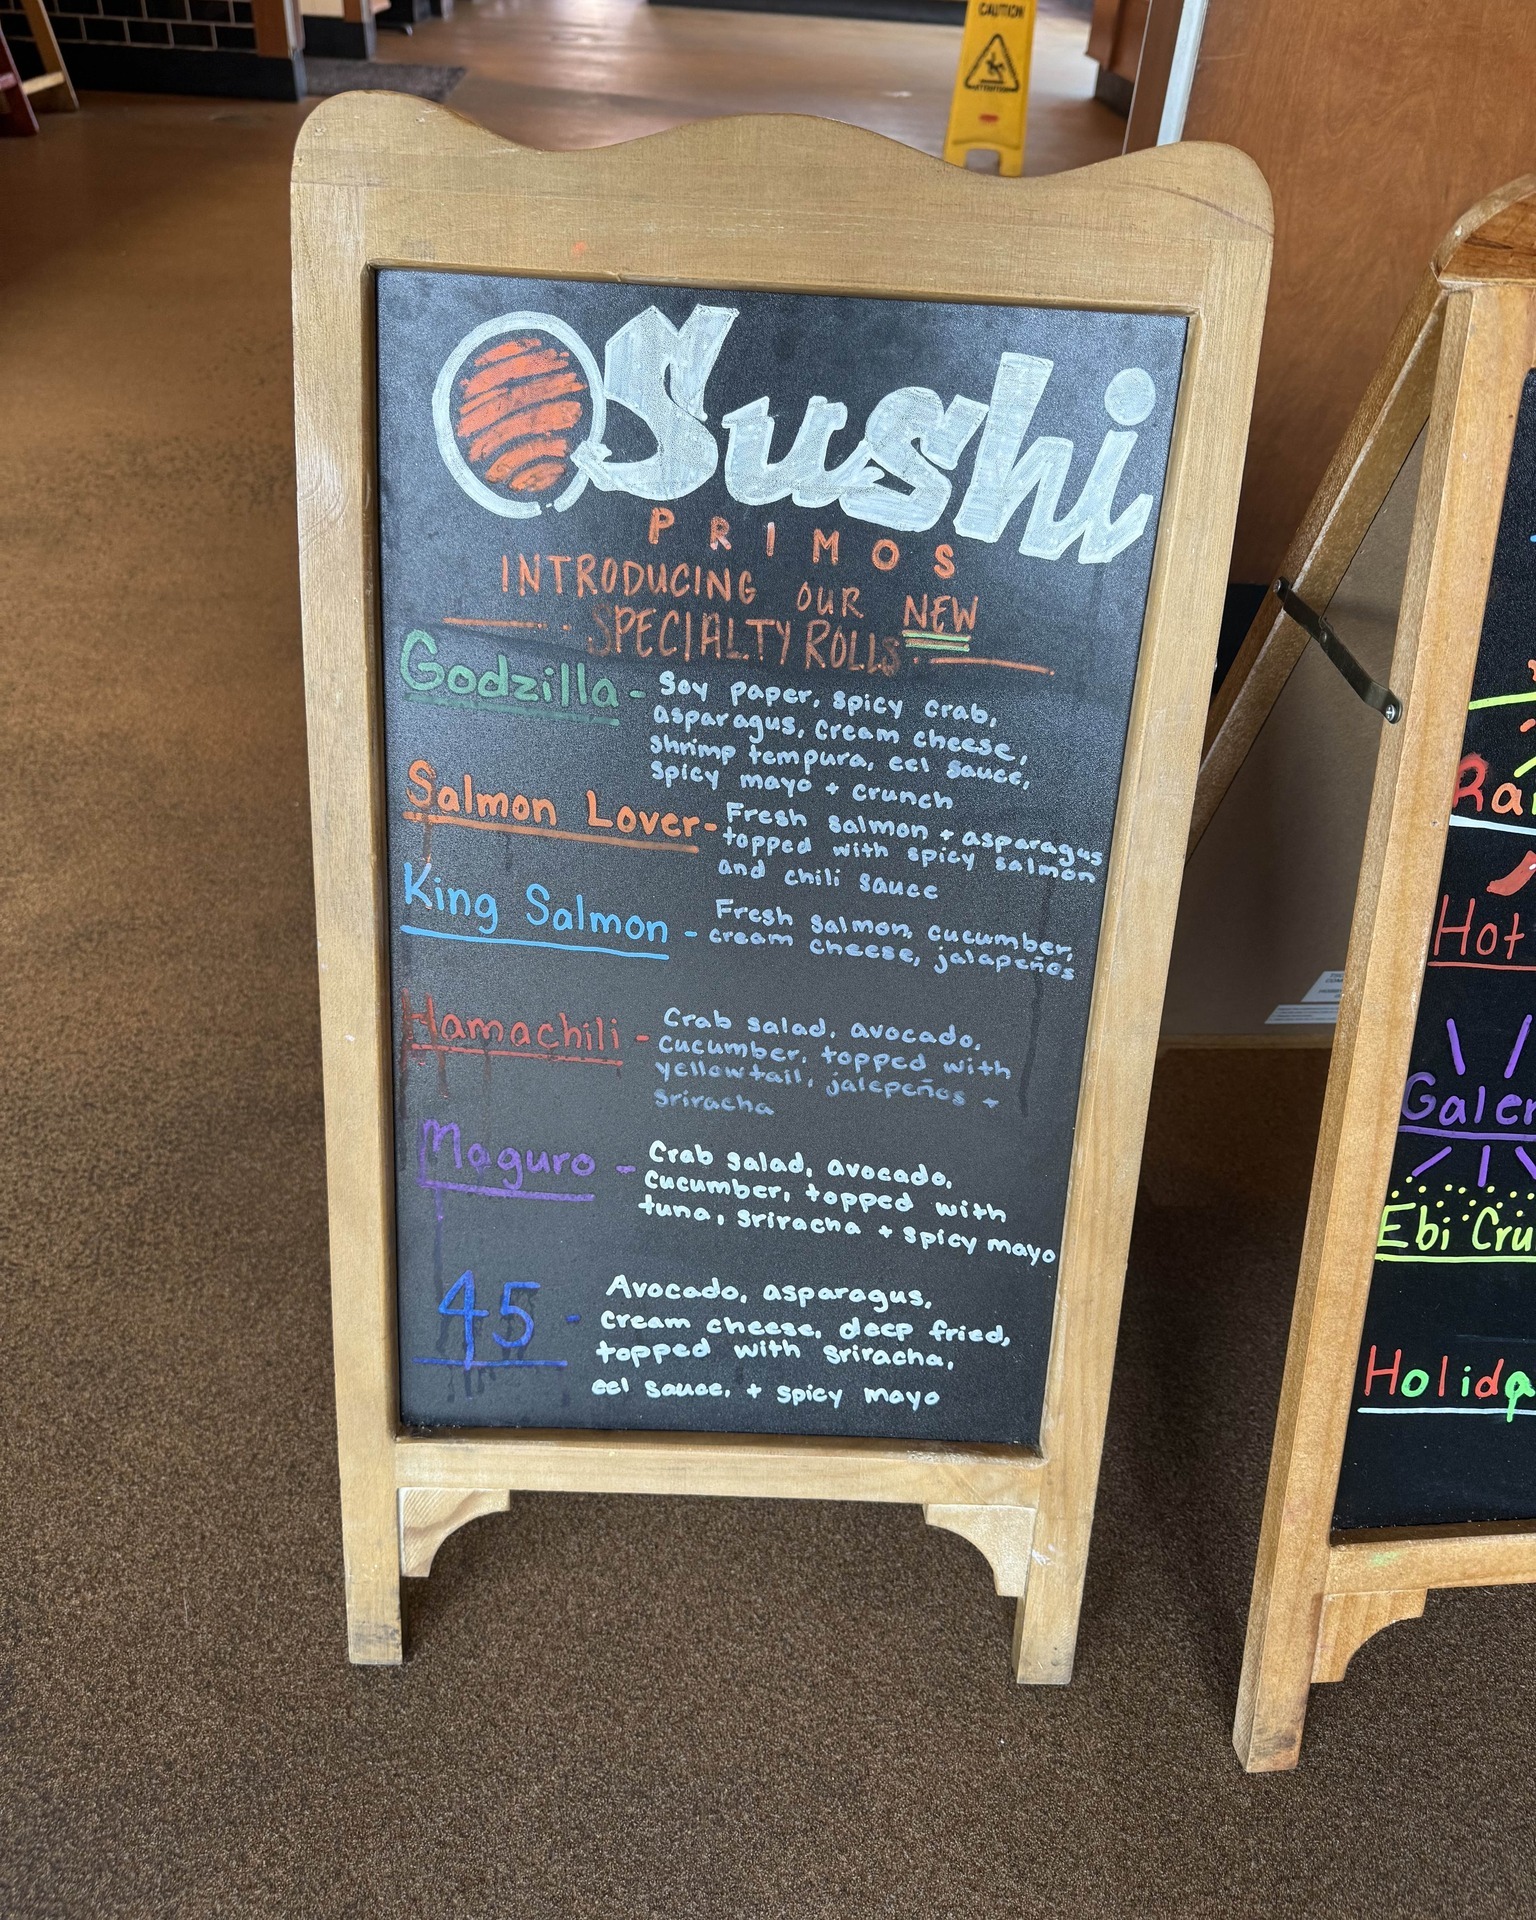 CAUTION
Sushi
PRIMOS
INTRODUCING OUR NEW
SPECIALTY ROLLS
Godzilla - Soy paper, spicy crab,
asparagus, cream cheese,
shrimp tempura, eel sauce,
spicy mayo + crunch
Salmon Lover - Fresh salmon + asparagus
topped with spicy salmon
and chili sauce
King Salmon - Fresh salmon, cucumber,
cream cheese, jalapeños
Hamachili - Crab salad, avocado,
cucumber, topped with
yellowtail, jalepeños +
sriracha
Maguro - Crab salad, avocado,
cucumber, topped with
tuna, sriracha + spicy mayo
45 - Avocado, asparagus,
cream cheese, deep fried,
topped with sriracha,
eel sauce, + spicy mayo
Ra
Hot
Galer
Ebi Cru
Holida